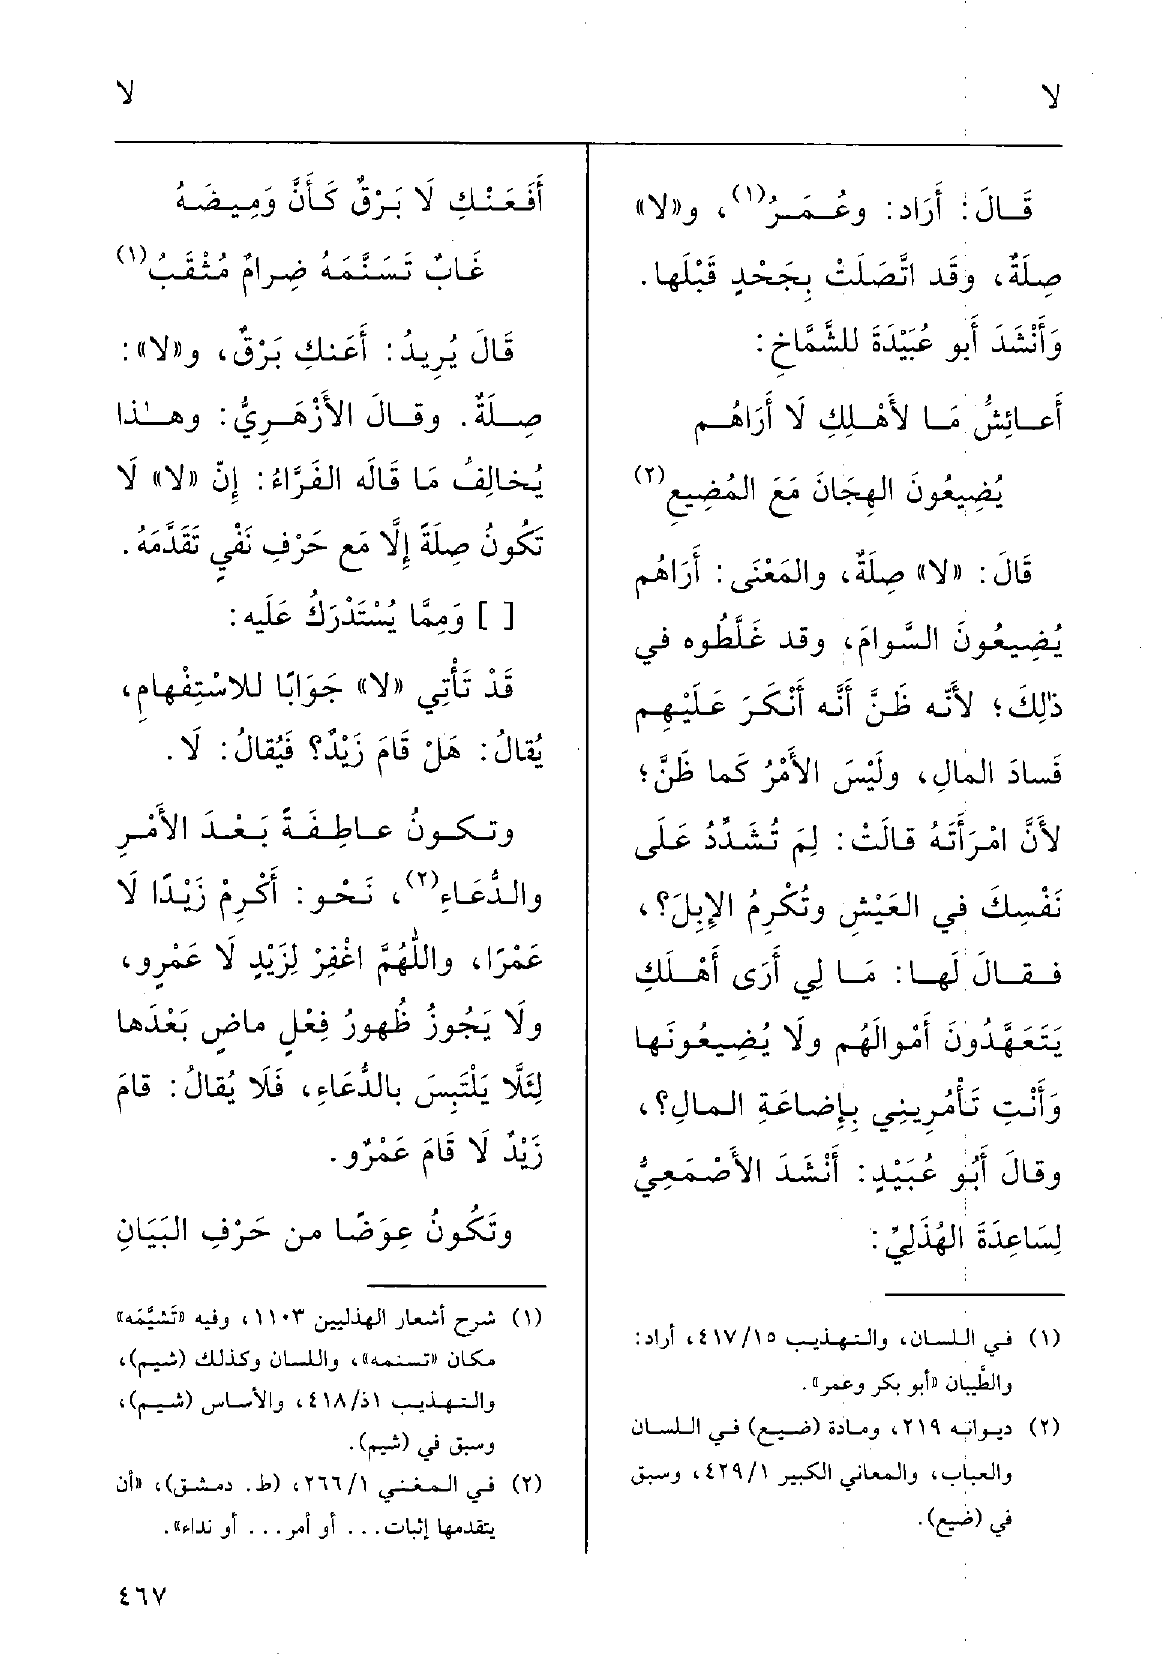 لا
لا
قَـالَ: أَرَاد: وعُـمَـرُ(١)، و«لا»
صِلَةٌ، وقَد اتَّصَلَتْ بِجَحْدٍ قَبْلَها.
وَأَنْشَدَ أَبو عُبَيْدَةَ للشَّمَّاخِ:
أَعـائِشُ مَـا لأَهْـلِكِ لَا أَرَاهُـم
يُضِيعُونَ الهِجَانَ مَعَ المُضِيعِ(٢)
قَالَ: «لا» صِلَةٌ، والمَعْنَى: أَرَاهُم
يُضِيعُونَ السَّوامَ، وقد غَلَّطُوه في
ذٰلِكَ؛ لأَنَّه ظَنَّ أَنَّه أَنْكَرَ عَلَيْهِم
فَسادَ المالِ، ولَيْسَ الأَمْرُ كَما ظَنَّ؛
لأَنَّ امْرَأَتَهُ قالَتْ: لِمَ تُشَدِّدُ عَلَى
نَفْسِكَ في العَيْشِ وتُكْرِمُ الإِبِلَ؟،
فـقـالَ لَـها: مَـا لِي أَرَى أَهْـلَكِ
يَتَعَهَّدُونَ أَمْوالَهُم ولَا يُضِيعُونَها
وَأَنْتِ تَأْمُرِينِي بِإِضاعَةِ المالِ؟،
وقالَ أَبُو عُبَيْدٍ: أَنْشَدَ الأَصْمَعِيُّ
لِسَاعِدَةَ الهُذَلِيِّ:
(١) في اللسان، والتهذيب ٤١٧/١٥، أراد:
والطَّيبان «أبو بكر وعمر».
(٢) ديوانه ٢١٩، ومادة (ضيع) في اللسان
والعباب، والمعاني الكبير ٤٢٩/١، وسبق
في (ضيع).
أَفَعَنْكِ لَا بَرْقٌ كَأَنَّ وَمِيضَهُ
غَابٌ تَسَنَّمَهُ ضِرامٌ مُثْقَبُ(١)
قَالَ يُرِيدُ: أَعَنكِ بَرْقٌ، و«لا»:
صِـلَةٌ. وقـالَ الأَزْهَـرِيُّ: وهـٰذا
يُخالِفُ مَا قَالَه الفَرَّاءُ: إِنّ «لا» لَا
تَكُونُ صِلَةً إِلَّا مَع حَرْفِ نَفْيٍ تَقَدَّمَهُ.
[ ] وَمِمَّا يُسْتَدْرَكُ عَلَيه:
قَدْ تَأْتِي «لا» جَوَابًا للاسْتِفْهامِ،
يُقالُ: هَلْ قَامَ زَيْدٌ؟ فَيُقالُ: لَا.
وتـكـونُ عـاطِـفَـةً بَـعْـدَ الأَمْـرِ
والدُّعَاءِ(٢)، نَحْو: أَكْرِمْ زَيْدًا لَا
عَمْرًا، واللَّهُمَّ اغْفِرْ لِزَيْدٍ لَا عَمْرٍو،
ولَا يَجُوزُ ظُهورُ فِعْلٍ ماضٍ بَعْدَها
لِئَلَّا يَلْتَبِسَ بالدُّعَاءِ، فَلَا يُقالُ: قامَ
زَيْدٌ لَا قَامَ عَمْرٌو.
وتَكُونُ عِوَضًا من حَرْفِ البَيَانِ
(١) شرح أشعار الهذليين ١١٠٣، وفيه «تَشَيَّمَه»
مكان «تسنمه»، واللسان وكذلك (شيم)،
والتهذيب ٤١٨/١٥، والأساس (شيم)،
وسبق في (شيم).
(٢) في المغني ٢٦٦/١، (ط. دمشق)، «أن
يتقدمها إثبات... أو أمر... أو نداء».
٤٦٧